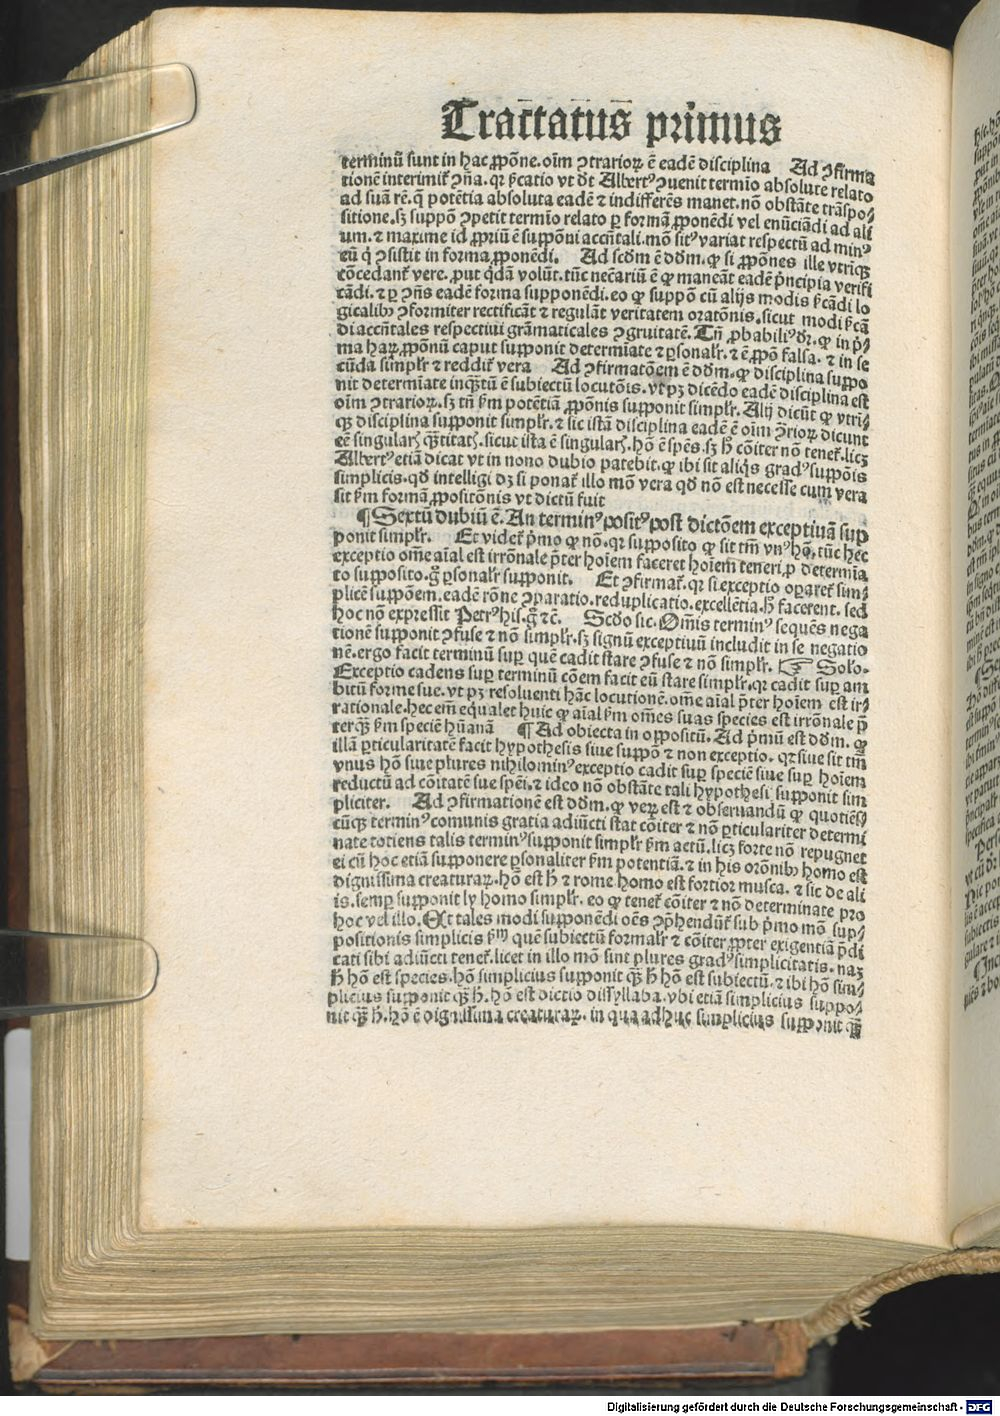 Tractatus primus
terminū sunt in hac ꝓpōne. oīm ꝯtrarioꝝ ē eadē disciplina Ad ꝯfirma
tionē interimit̄ ꝯn̄a. qꝛ p̄catio vt dt̄ Albertꝰ ꝯuenit termīo absolute relato
ad suā rē. q̄ potētia absoluta eadē ⁊ indifferēs manet. nō obstāte trāspo⸗
sitione. sꝫ suppō ꝯpetit termīo relato ꝑ formā ꝓponēdi vel enūciādi ad ali
um. ⁊ maxime id ꝓpriū ē supponi accn̄tali. mō sitꝰ variat respectū ad minꝰ
eū q̇ ꝯsistit in forma ꝓponēdi. Ad scd̄m ē dd̄m. ꝙ si ꝓpōnes ille vtriꝗꝫ
cōcedant̄ vere. put qd̄ā volūt. tūc necāriū ē ꝙ maneāt eadē pn̄cipia verifi
cādi. ⁊ ꝑ ꝯn̄s eadē forma supponēdi. eo ꝙ suppō cū alijs modis p̄cādi lo
gicalibꝰ ꝯformiter rectificāt ⁊ regulāt veritatem oratōnis. sicut modi p̄cā
di accn̄tales respectiui grāmaticales ꝯgruitatē. Tn̄ ꝓbabiliꝰ dꝛ. ꝙ in p̄⸗
ma haꝝ ꝓpōnū caput supponit determīate ⁊ ꝑsonalr̄. ⁊ ē ꝓpō falsa. ⁊ in se
cūda simplr̄ ⁊ reddit̄ vera Ad ꝯfirmatōem ē dd̄m. ꝙ disciplina suppo
nit determīate inꝗ̄tū ē subiectū locutōis. vtpꝫ dicēdo eadē disciplina est
oīm ꝯtrarioꝝ. sꝫ tn̄ ẜm potētiā ꝓpōnis supponit simplr̄. Alij dicūt ꝙ vtri⸗
qꝫ disciplina supponit simplr̄. ⁊ sic istā disciplina eadē ē oīm ꝯrioꝝ dicunt
eē singularꝭ ꝗ̄titatꝭ. sicut ista ē singularꝭ. hō ē spēs. sꝫ h̄ cōiter nō tenet̄. licꝫ
Albertꝰ etiā dicat vt in nono dubio patebit. ꝙ ibi sit aliqs gradꝰ suppōis
simplicis. qd̄ intelligi dꝫ si ponat̄ illo mō vera qd̄ nō est necesse cum vera
sit ẜm formā ꝓpositōnis vt dictū fuit
¶ Sextū dubiū ē. An terminꝰ positꝰ post dictōem exceptiuā sup
ponit simplr̄. Et videt̄ p̄mo ꝙ nō. qꝛ supposito ꝙ sit tm̄ vnꝰ hō. tūc hec
exceptio om̄e aīal est irrōnale p̄ter hoīem faceret hoīem teneri ꝓ determīa
to supposito. g̊ ꝑsonalr̄ supponit. Et ꝯfirmat̄. qꝛ si exceptio oꝑaret̄ sim⸗
plicē suppōem. eadē rōne ꝯparatio. reduplicatio. excellētia. h̄ facerent. sed
hoc nō expressit Petrꝰ his. g̊ ⁊c̄. Scd̄o sic. Om̄is terminꝰ sequēs nega
tionē supponit ꝯfuse ⁊ nō simplr̄. sꝫ signū exceptiuū includit in se negatio
nē. ergo facit terminū suꝑ quē cadit stare ꝯfuse ⁊ nō simplr̄. ☞ Solo.
Exceptio cadens suꝑ terminū cōem facit eū stare simplr̄. qꝛ cadit suꝑ am
bitū forme sue. vt pꝫ resoluenti hāc locutionē. om̄e aīal p̄ter hoīem est ir⸗
rationale. hec em̄ equalet huic ꝙ aīal ẜm om̄es suas species est irrōnale p̄
terqꝫ ẜm speciē hūanā ¶ Ad obiecta in oppositū. Ad p̄mū est dd̄m. ꝙ
illā ꝑticularitatē facit hypothesis siue suppō ⁊ non exceptio. qꝛ siue sit tm̄
vnus hō siue plures nihilominꝰ exceptio cadit suꝑ speciē siue suꝑ hoīem
reductū ad cōitatē sue spēi. ⁊ ideo nō obstāte tali hypothesi supponit sim
pliciter. Ad ꝯfirmationē est dd̄m. ꝙ veꝝ est ⁊ obseruandū ꝙ quotiēs⸗
cūqꝫ terminꝰ comunis gratia adiūcti stat cōiter ⁊ nō ꝑticulariter determi
nate totiens talis terminꝰ supponit simplr̄ ẜm actū. licꝫ forte nō repugnet
ei cū hoc etiā supponere ꝑsonaliter ẜm potentiā. ⁊ in his orōnibꝰ homo est
dignissima creaturaꝝ. hō est h̄ ⁊ rome homo est fortior musca. ⁊ sic de ali
is. semꝑ supponit ly homo simplr̄. eo ꝙ tenet̄ cōiter ⁊ nō determinate pro
hoc vel illo. Et tales modi supponēdi oēs ꝯp̄hendūt̄ sub p̄mo mō sup⸗
positionis simplicis ẜm quē subiectū formalr̄ ⁊ cōiter ꝓpter exigentiā p̄di
cati sibi adiūcti tenet̄. licet in illo mō sint plures gradꝰ simplicitatis. naꝫ
h̄ hō est species. hō simplicius supponit ꝗ̄ h̄ hō est subiectū. ⁊ ibi hō sim⸗
plicius supponit ꝗ̄ h̄. hō est dictio dissyllaba. vbi etiā simplicius suppo⸗
nit ꝗ̄ h̄. hō ē dignissima creaturaꝝ. in qua adhuc simplicius supponit ꝗ̄
Digitalisierung gefördert durch die Deutsche Forschungsgemeinschaft - DFG